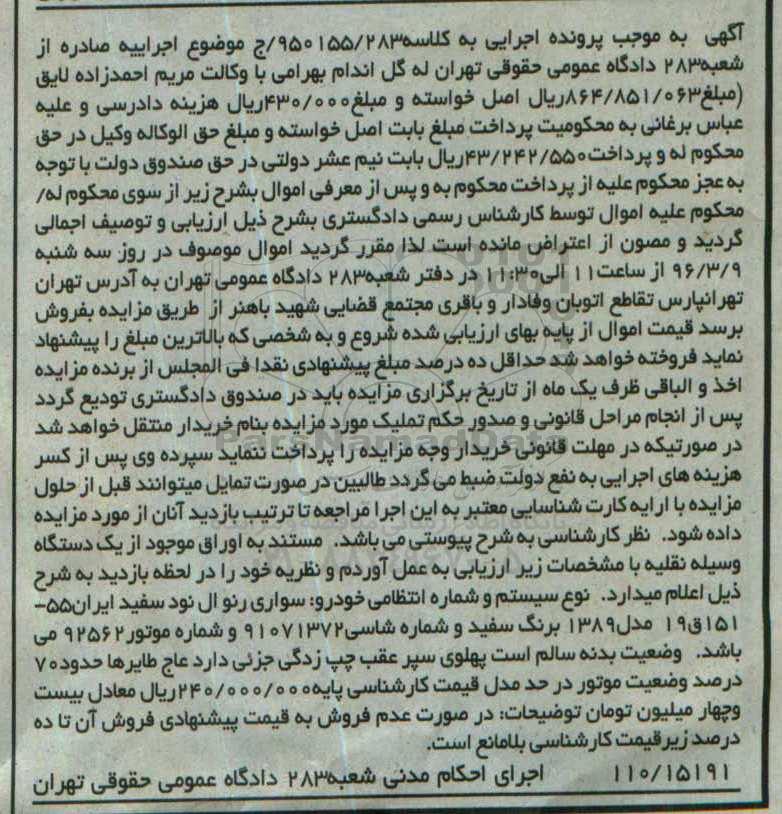 آگهی به موجب پرونده اجرایی به کلاسه۹۵۰۱۵۵/۲۸۳/ج موضوع اجراییه صادره از
شعبه۲۸۳ دادگاه عمومی حقوقی تهران له گل اندام بهرامی با وکالت مریم احمدزاده لایق
(مبلغ۸۶۴/۸۵۱/۰۶۳ریال اصل خواسته و مبلغ۴۳۰/۰۰۰ریال هزینه دادرسی و علیه
عباس برغانی به محکومیت پرداخت مبلغ بابت اصل خواسته و مبلغ حق الوکاله وکیل در حق
محکوم له و پرداخت۴۳/۲۴۲/۵۵۰ریال بابت نیم عشر دولتی در حق صندوق دولت با توجه
به عجز محکوم علیه از پرداخت محکوم به و پس از معرفی اموال بشرح زیر از سوی محکوم له/
محکوم علیه اموال توسط کارشناس رسمی دادگستری بشرح ذیل ارزیابی و توصیف اجمالی
گردید و مصون از اعتراض مانده است لذا مقرر گردید اموال موصوف در روز سه شنبه
۹۶/۳/۹ از ساعت۱۱ الی۱۱:۳۰ در دفتر شعبه۲۸۳ دادگاه عمومی تهران به آدرس تهران
تهرانپارس تقاطع اتوبان وفادار و باقری مجتمع قضایی شهید باهنر از طریق مزایده بفروش
برسد قیمت اموال از پایه بهای ارزیابی شده شروع و به شخصی که بالاترین مبلغ را پیشنهاد
نماید فروخته خواهد شد حداقل ده درصد مبلغ پیشنهادی نقدا فی المجلس از برنده مزایده
اخذ و الباقی ظرف یک ماه از تاریخ برگزاری مزایده باید در صندوق دادگستری تودیع گردد
پس از انجام مراحل قانونی و صدور حکم تملیک مورد مزایده بنام خریدار منتقل خواهد شد
در صورتیکه در مهلت قانونی خریدار وجه مزایده را پرداخت ننماید سپرده وی پس از کسر
هزینه های اجرایی به نفع دولت ضبط می گردد طالبین در صورت تمایل میتوانند قبل از حلول
مزایده با ارایه کارت شناسایی معتبر به این اجرا مراجعه تا ترتیب بازدید آنان از مورد مزایده
داده شود. نظر کارشناسی به شرح پیوستی می باشد. مستند به اوراق موجود از یک دستگاه
وسیله نقلیه با مشخصات زیر ارزیابی به عمل آوردم و نظریه خود را در لحظه بازدید به شرح
ذیل اعلام میدارد. نوع سیستم و شماره انتظامی خودرو: سواری رنو ال نود سفید ایران۵۵-
۱۵۱ق۱۹ مدل۱۳۸۹ برنگ سفید و شماره شاسی۹۱۰۷۱۳۷۲ و شماره موتور۹۲۵۶۲ می
باشد. وضعیت بدنه سالم است پهلوی سپر عقب چپ زدگی جزئی دارد عاج طایرها حدود۷۰
درصد وضعیت موتور در حد مدل قیمت کارشناسی پایه۲۴۰/۰۰۰/۰۰۰ریال معادل بیست
وچهار میلیون تومان توضیحات: در صورت عدم فروش به قیمت پیشنهادی فروش آن تا ده
درصد زیرقیمت کارشناسی بلامانع است.
۱۱۰/۱۵۱۹۱ اجرای احکام مدنی شعبه۲۸۳ دادگاه عمومی حقوقی تهران